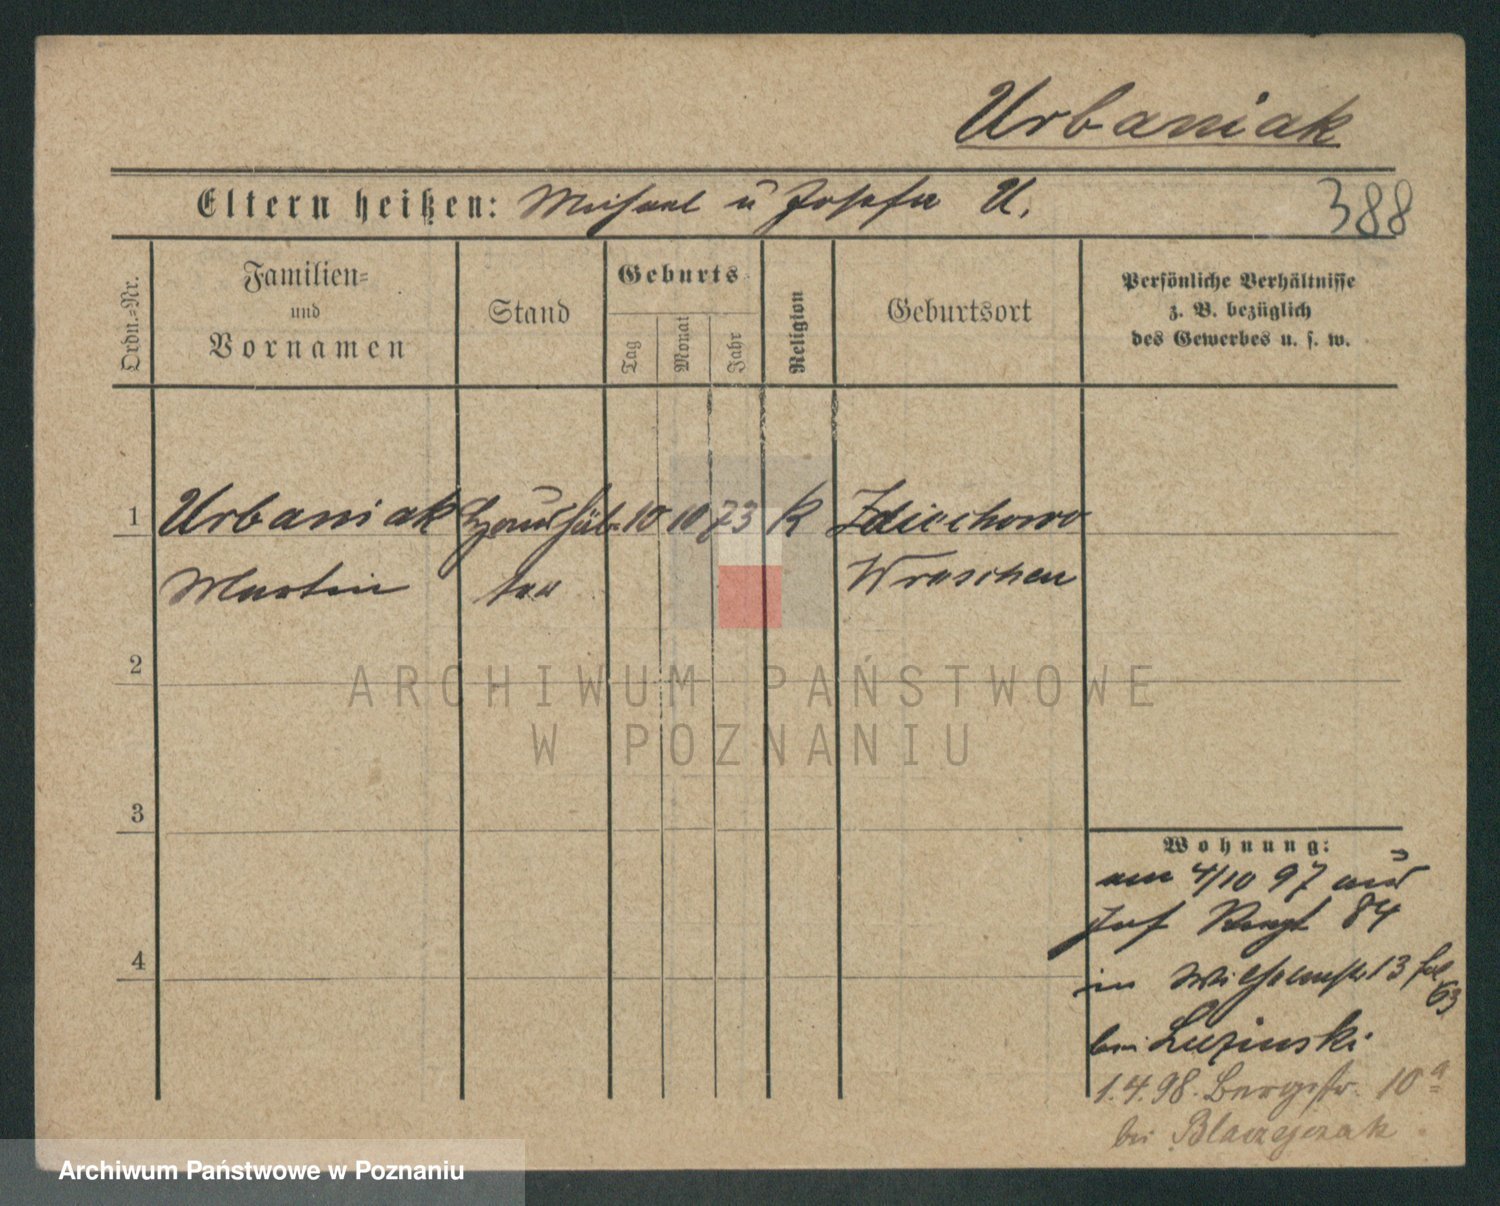 Urbaniak
Eltern heißen: Michael u Josefa U.
388
Ordn.=Nr.
Familien=
und
Vornamen
Stand
Geburts
Tag
Monat
Jahr
Religion
Geburtsort
Persönliche Verhältnisse
z. B. bezüglich
des Gewerbes u. s. w.
1 Urbaniak 10 10 73 K Zdiechowo
Martin ter Wreschen
2
ARCHIWUM PAŃSTWOWE
W POZNANIU
3
4
Wohnung:
am 4/10 97 aus
Inf Regt 84
in Wilhelmstr 13
63
bei Luzinski
1.4.98. Bergstr. 10a
bei Blaszczak
Archiwum Państwowe w Poznaniu